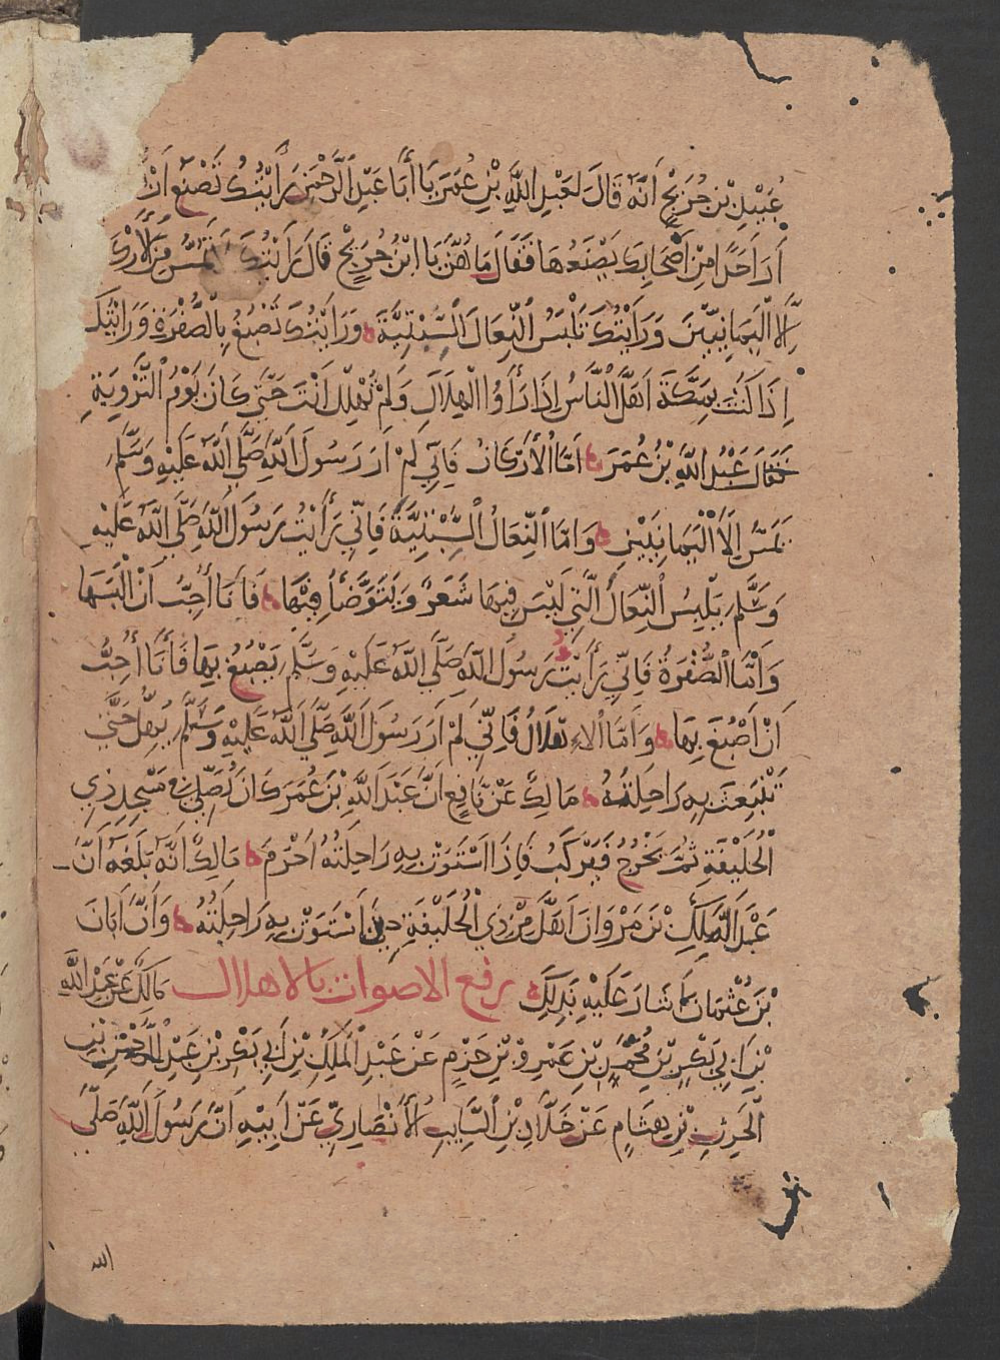 عُبَيْدِ بْنِ جُرَيْجٍ أَنَّهُ قَالَ لِعَبْدِ اللَّهِ بْنِ عُمَرَ يَا أَبَا عَبْدِ الرَّحْمَنِ رَأَيْتُكَ تَصْنَعُ
أَرَ أَحَدًا مِنْ أَصْحَابِكَ يَصْنَعُهَا فَقَالَ مَا هُنَّ يَا ابْنَ جُرَيْجٍ قَالَ رَأَيْتُكَ لَا تَمَسُّ مِنَ الْأَرْكَ
إِلَّا الْيَمَانِيَيْنِ وَرَأَيْتُكَ تَلْبَسُ النِّعَالَ السِّبْتِيَّةَ وَرَأَيْتُكَ تَصْبُغُ بِالصُّفْرَةِ وَرَأَيْتُكَ
إِذَا كُنْتَ بِمَكَّةَ أَهَلَّ النَّاسُ إِذَا رَأَوُا الْهِلَالَ وَلَمْ تُهْلِلْ أَنْتَ حَتَّى كَانَ يَوْمُ التَّرْوِيَةِ
فَقَالَ عَبْدُ اللَّهِ بْنُ عُمَرَ أَمَّا الْأَرْكَانُ فَإِنِّي لَمْ أَرَ رَسُولَ اللَّهِ صَلَّى اللَّهُ عَلَيْهِ وَسَلَّمَ
يَمَسُّ إِلَّا الْيَمَانِيَيْنِ وَأَمَّا النِّعَالُ السِّبْتِيَّةُ فَإِنِّي رَأَيْتُ رَسُولَ اللَّهِ صَلَّى اللَّهُ عَلَيْهِ
وَسَلَّمَ يَلْبِسُ النِّعَالَ الَّتِي لَيْسَ فِيهَا شَعَرٌ وَيَتَوَضَّأُ فِيهَا فَأَنَا أُحِبُّ أَنْ أَلْبَسَهَا
وَأَمَّا الصُّفْرَةُ فَإِنِّي رَأَيْتُ رَسُولَ اللَّهِ صَلَّى اللَّهُ عَلَيْهِ وَسَلَّمَ يَصْبُغُ بِهَا فَأَنَا أُحِبُّ
أَنْ أَصْبُغَ بِهَا وَأَمَّا الْإِهْلَالُ فَإِنِّي لَمْ أَرَ رَسُولَ اللَّهِ صَلَّى اللَّهُ عَلَيْهِ وَسَلَّمَ يُهِلُّ حَتَّى
تَنْبَعِثَ بِهِ رَاحِلَتُهُ مَالِكٌ عَنْ نَافِعٍ أَنَّ عَبْدَ اللَّهِ بْنَ عُمَرَ كَانَ يُصَلِّي فِي مَسْجِدِ ذِي
الْحُلَيْفَةِ ثُمَّ يَخْرُجُ فَيَرْكَبُ فَإِذَا اسْتَوَتْ بِهِ رَاحِلَتُهُ أَحْرَمَ مَالِكٌ أَنَّهُ بَلَغَهُ أَنَّ
عَبْدَ الْمَلِكِ بْنَ مَرْوَانَ أَهَلَّ مِنْ ذِي الْحُلَيْفَةِ حِينَ اسْتَوَتْ بِهِ رَاحِلَتُهُ وَأَنَّ أَبَانَ
بْنَ عُثْمَانَ أَشَارَ عَلَيْهِ بِذَلِكَ رفع الاصوات بالاهلال مَالِكٌ عَنْ عَبْدِ اللَّهِ
بْنِ أَبِي بَكْرِ بْنِ مُحَمَّدِ بْنِ عَمْرِو بْنِ حَزْمٍ عَنْ عَبْدِ الْمَلِكِ بْنِ أَبِي بَكْرِ بْنِ عَبْدِ الرَّحْمَنِ بْنِ
الْحَرِثِ بْنِ هِشَامٍ عَنْ خَلَّادِ بْنِ السَّايِبِ الْأَنْصَارِيِّ عَنْ أَبِيهِ أَنَّ رَسُولَ اللَّهِ صَلَّى
الله